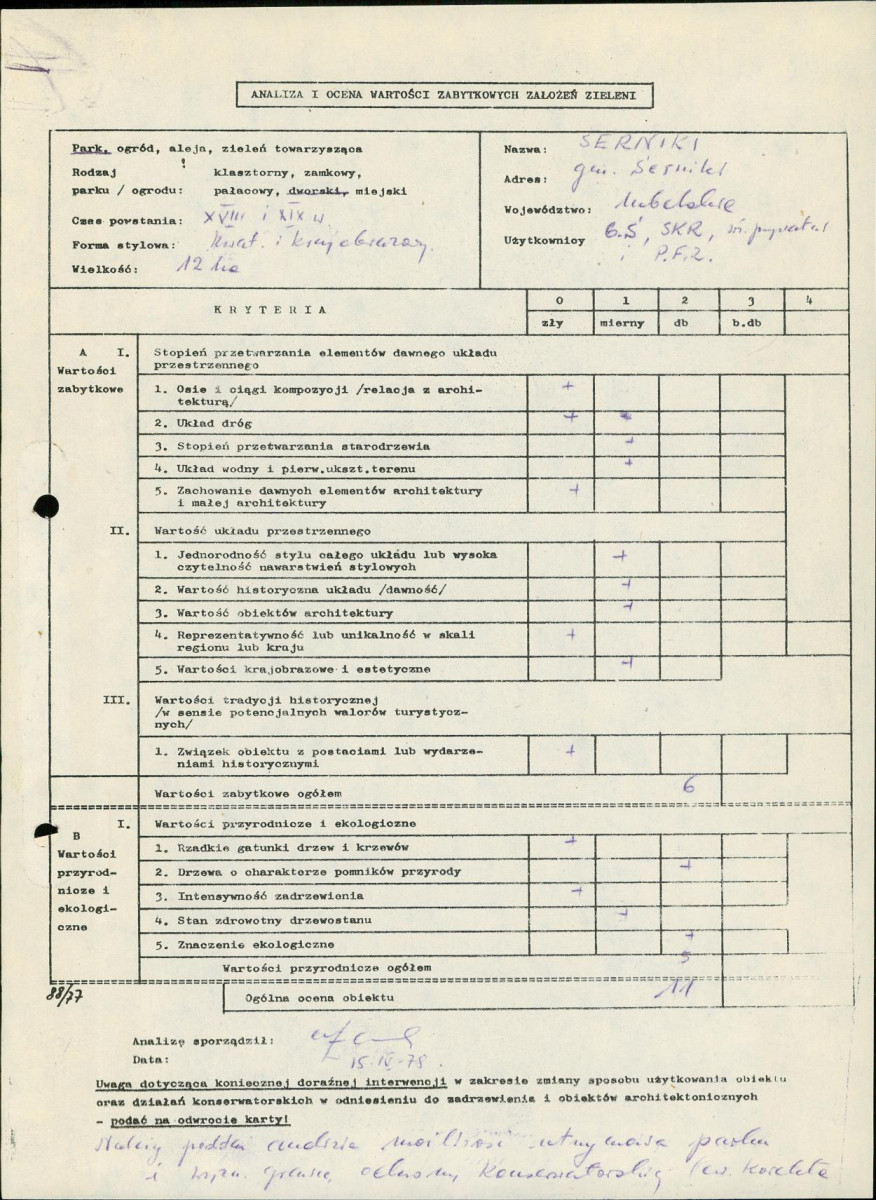 ANALIZA I OCENA WARTOŚCI ZABYTKOWYCH ZAŁOŻEŃ ZIELENI
Park, ogród, aleja, zieleń towarzysząca
Rodzaj klasztorny, zamkowy,
parku / ogrodu: pałacowy, dworski, miejski
Czas powstania: XVIII i XIX w
Forma stylowa: kwat. i krajobrazowy.
Wielkość: 12 ha
Nazwa: SERNIKI
Adres: gm. Serniki
Województwo: lubelskie
Użytkownicy G.S, SKR, wł. prywatni
i P.F.Z.
KRYTERIA 0 1 2 3 4
zły mierny db b.db
A I. Stopień przetwarzania elementów dawnego układu
Wartości przestrzennego
zabytkowe 1. Osie i ciągi kompozycji /relacja z archi- +
tekturą/
2. Układ dróg + +
3. Stopień przetwarzania starodrzewia +
4. Układ wodny i pierw.ukszt.terenu +
5. Zachowanie dawnych elementów architektury +
i małej architektury
II. Wartość układu przestrzennego
1. Jednorodność stylu całego układu lub wysoka +
czytelność nawarstwień stylowych
2. Wartość historyczna układu /dawność/ +
3. Wartość obiektów architektury +
4. Reprezentatywność lub unikalność w skali +
regionu lub kraju
5. Wartości krajobrazowe i estetyczne +
III. Wartości tradycji historycznej
/w sensie potencjalnych walorów turystycz-
nych/
1. Związek obiektu z postaciami lub wydarze- +
niami historycznymi
Wartości zabytkowe ogółem 6
I. Wartości przyrodnicze i ekologiczne
B
Wartości 1. Rzadkie gatunki drzew i krzewów +
przyrod- 2. Drzewa o charakterze pomników przyrody +
nicze i 3. Intensywność zadrzewienia +
ekologi- 4. Stan zdrowotny drzewostanu +
czne 5. Znaczenie ekologiczne +
Wartości przyrodnicze ogółem 5
88/77 Ogólna ocena obiektu 11
Analizę sporządził:
Data: 15.IV-78.
Uwaga dotycząca koniecznej doraźnej interwencji w zakresie zmiany sposobu użytkowania obiektu
oraz działań konserwatorskich w odniesieniu do zadrzewienia i obiektów architektonicznych
- podać na odwrocie karty!
Należy poddać możliwość utrzymania parku
i granicę ochrony konserwatorskiej